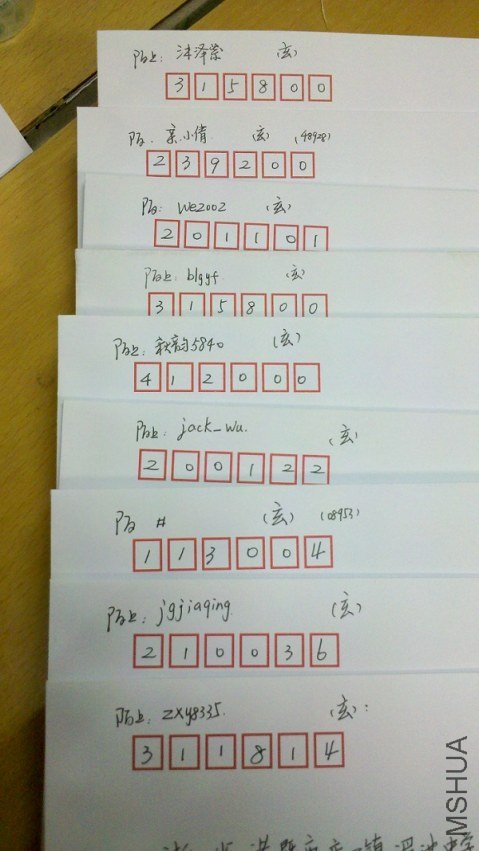 陌上: 沐泽棠 (玄)
315800
陌: 亲小倩 (玄) (48928)
239200
陌: We2002 (玄)
201101
陌上: blgyf (玄)
315800
陌上: 秋韵5840 (玄)
412000
陌上: jack_wu. (玄)
200122
陌 # (玄) (08953)
113004
陌上: jgjiaqing (玄)
210036
陌上: zxy8335. (玄):
311814
MSHUA